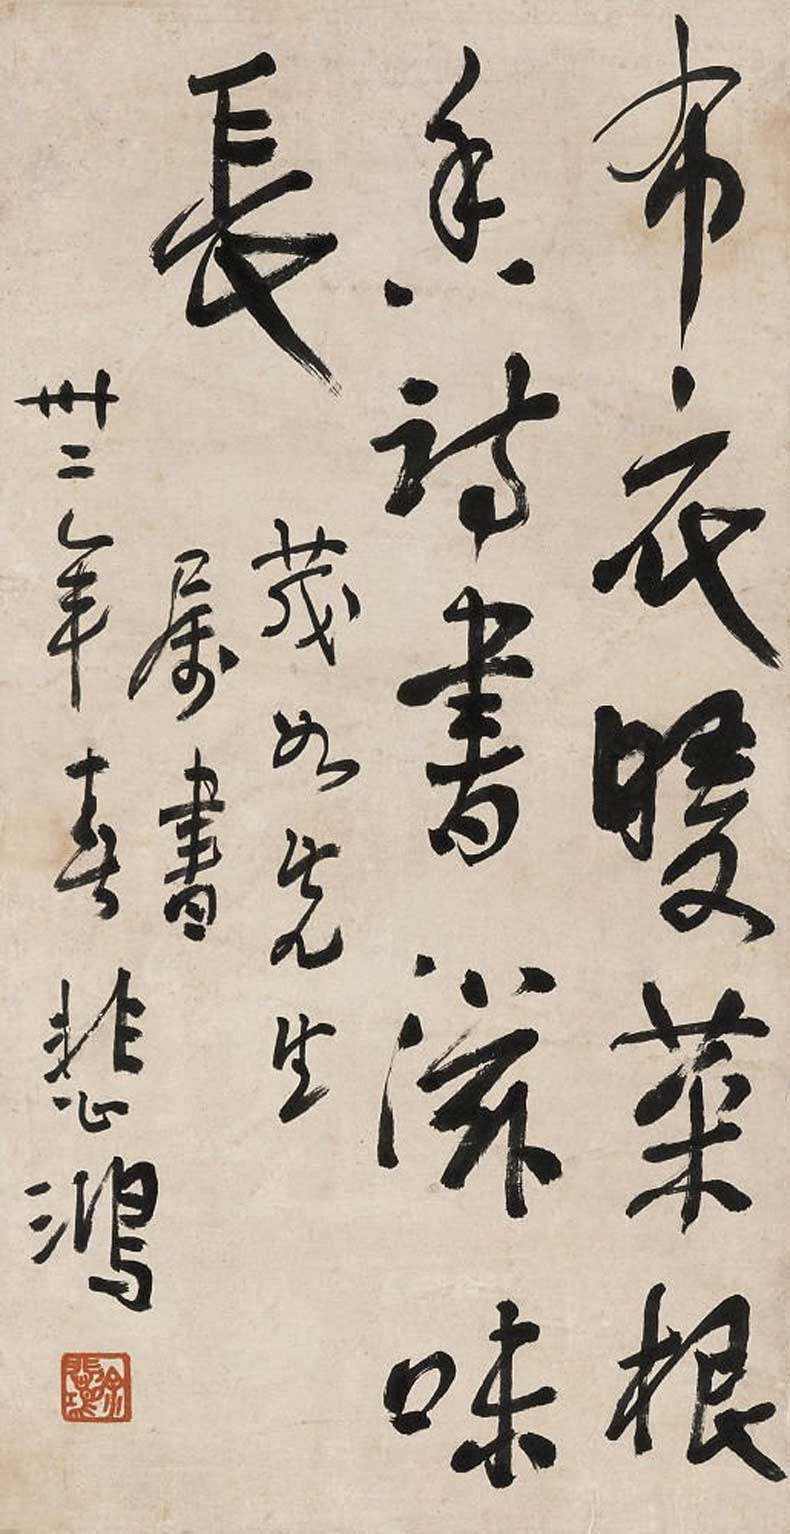 布衣暖菜根
香詩書滋味
長
茂如先生
属書
卅二年春 悲鴻
徐悲鴻